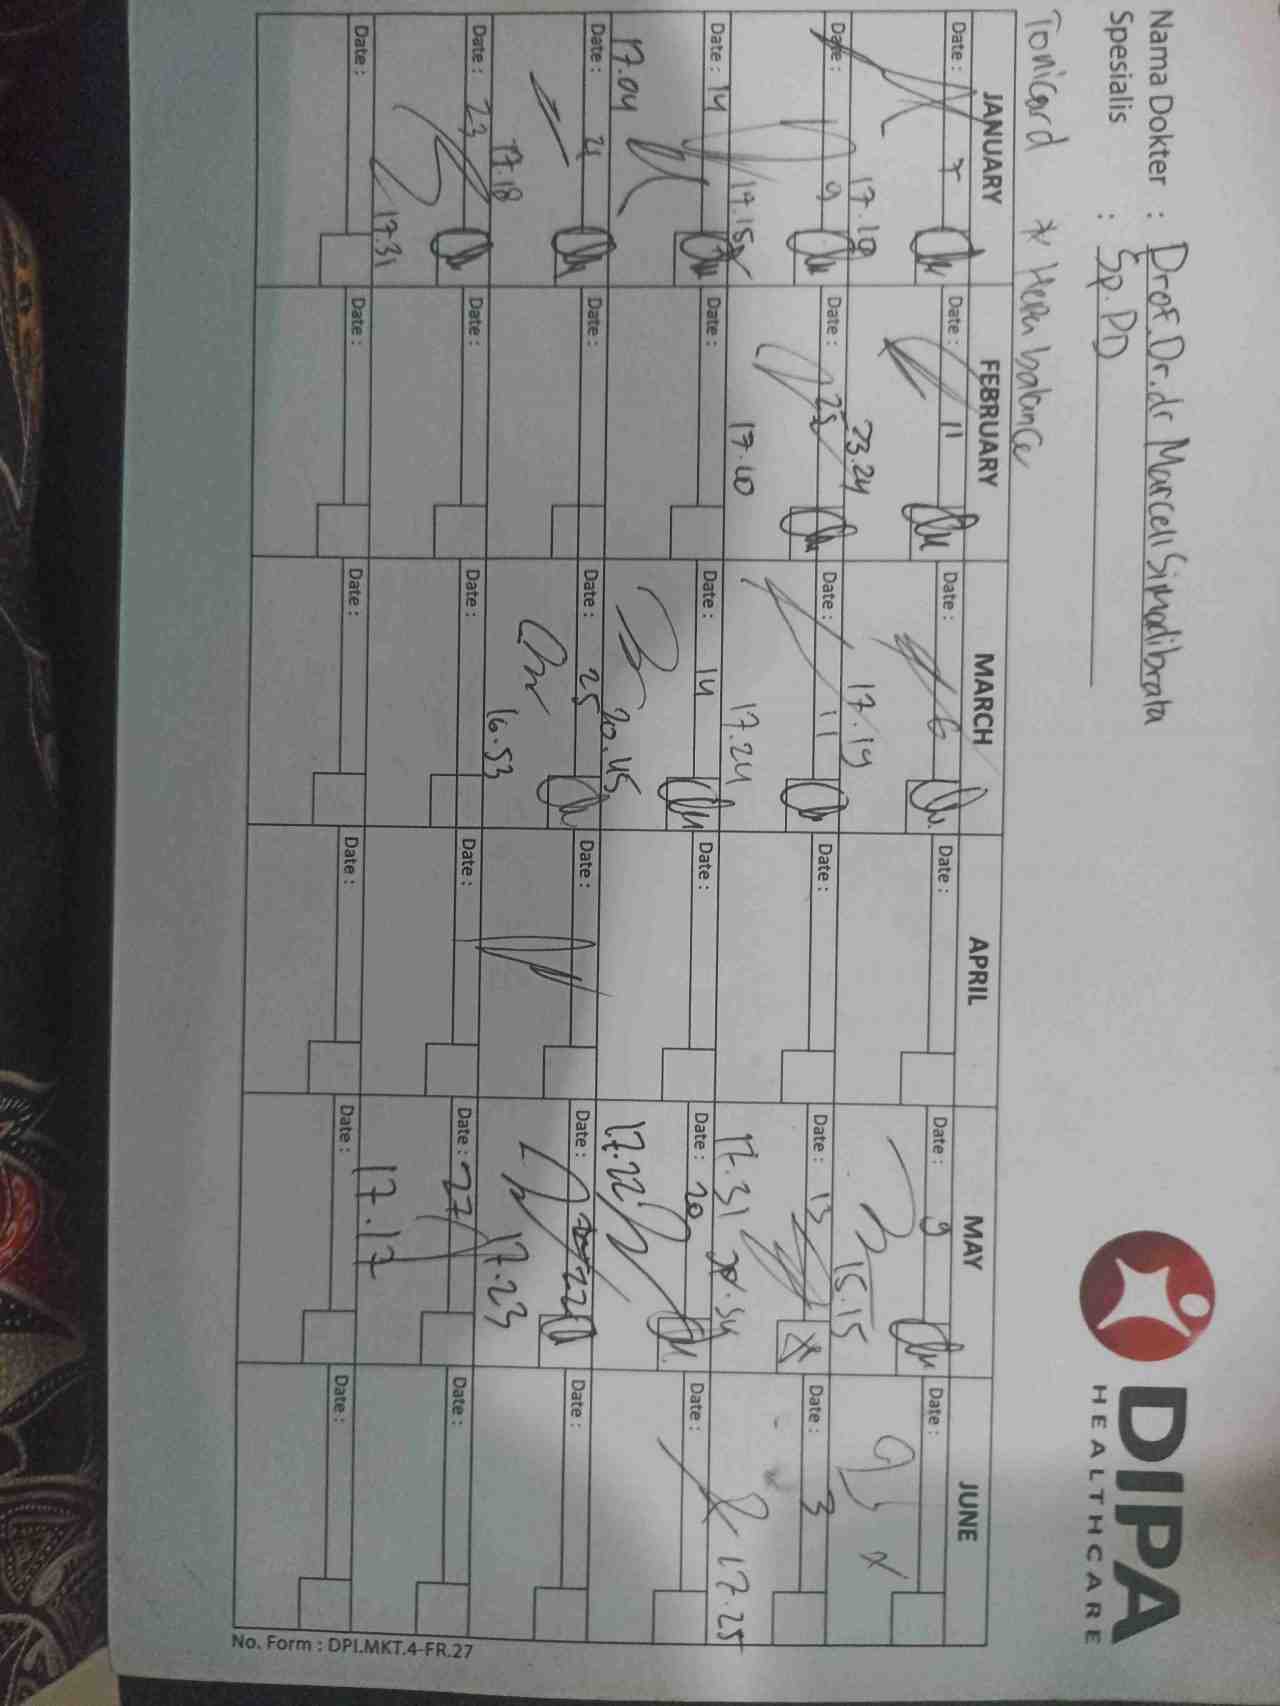 Nama Dokter : Prof. Dr. dr Marcell Simadibrata
Spesialis : Sp. PD
DIPA
HEALTHCARE
Tonicard * Hepa balance
JANUARY FEBRUARY MARCH APRIL MAY JUNE
Date : 7 Date : 11 Date : 6 Date : Date : 9 Date :
17.19 23.24 17.19 15.15 x
Date : 9 Date : 25 Date : 11 Date : Date : 13 Date : 3
17.10 17.24 17.31 17.25
Date : 14 Date : Date : 14 Date : Date : 20 Date :
17.04 20.45 17.22
Date : 21 Date : Date : 25 Date : Date : 22 Date :
17.18 16.53 17.23
Date : 23 Date : Date : Date : Date : 27 Date :
17.31 17.17
Date : Date : Date : Date : Date : Date :
No. Form : DPI.MKT.4-FR.27